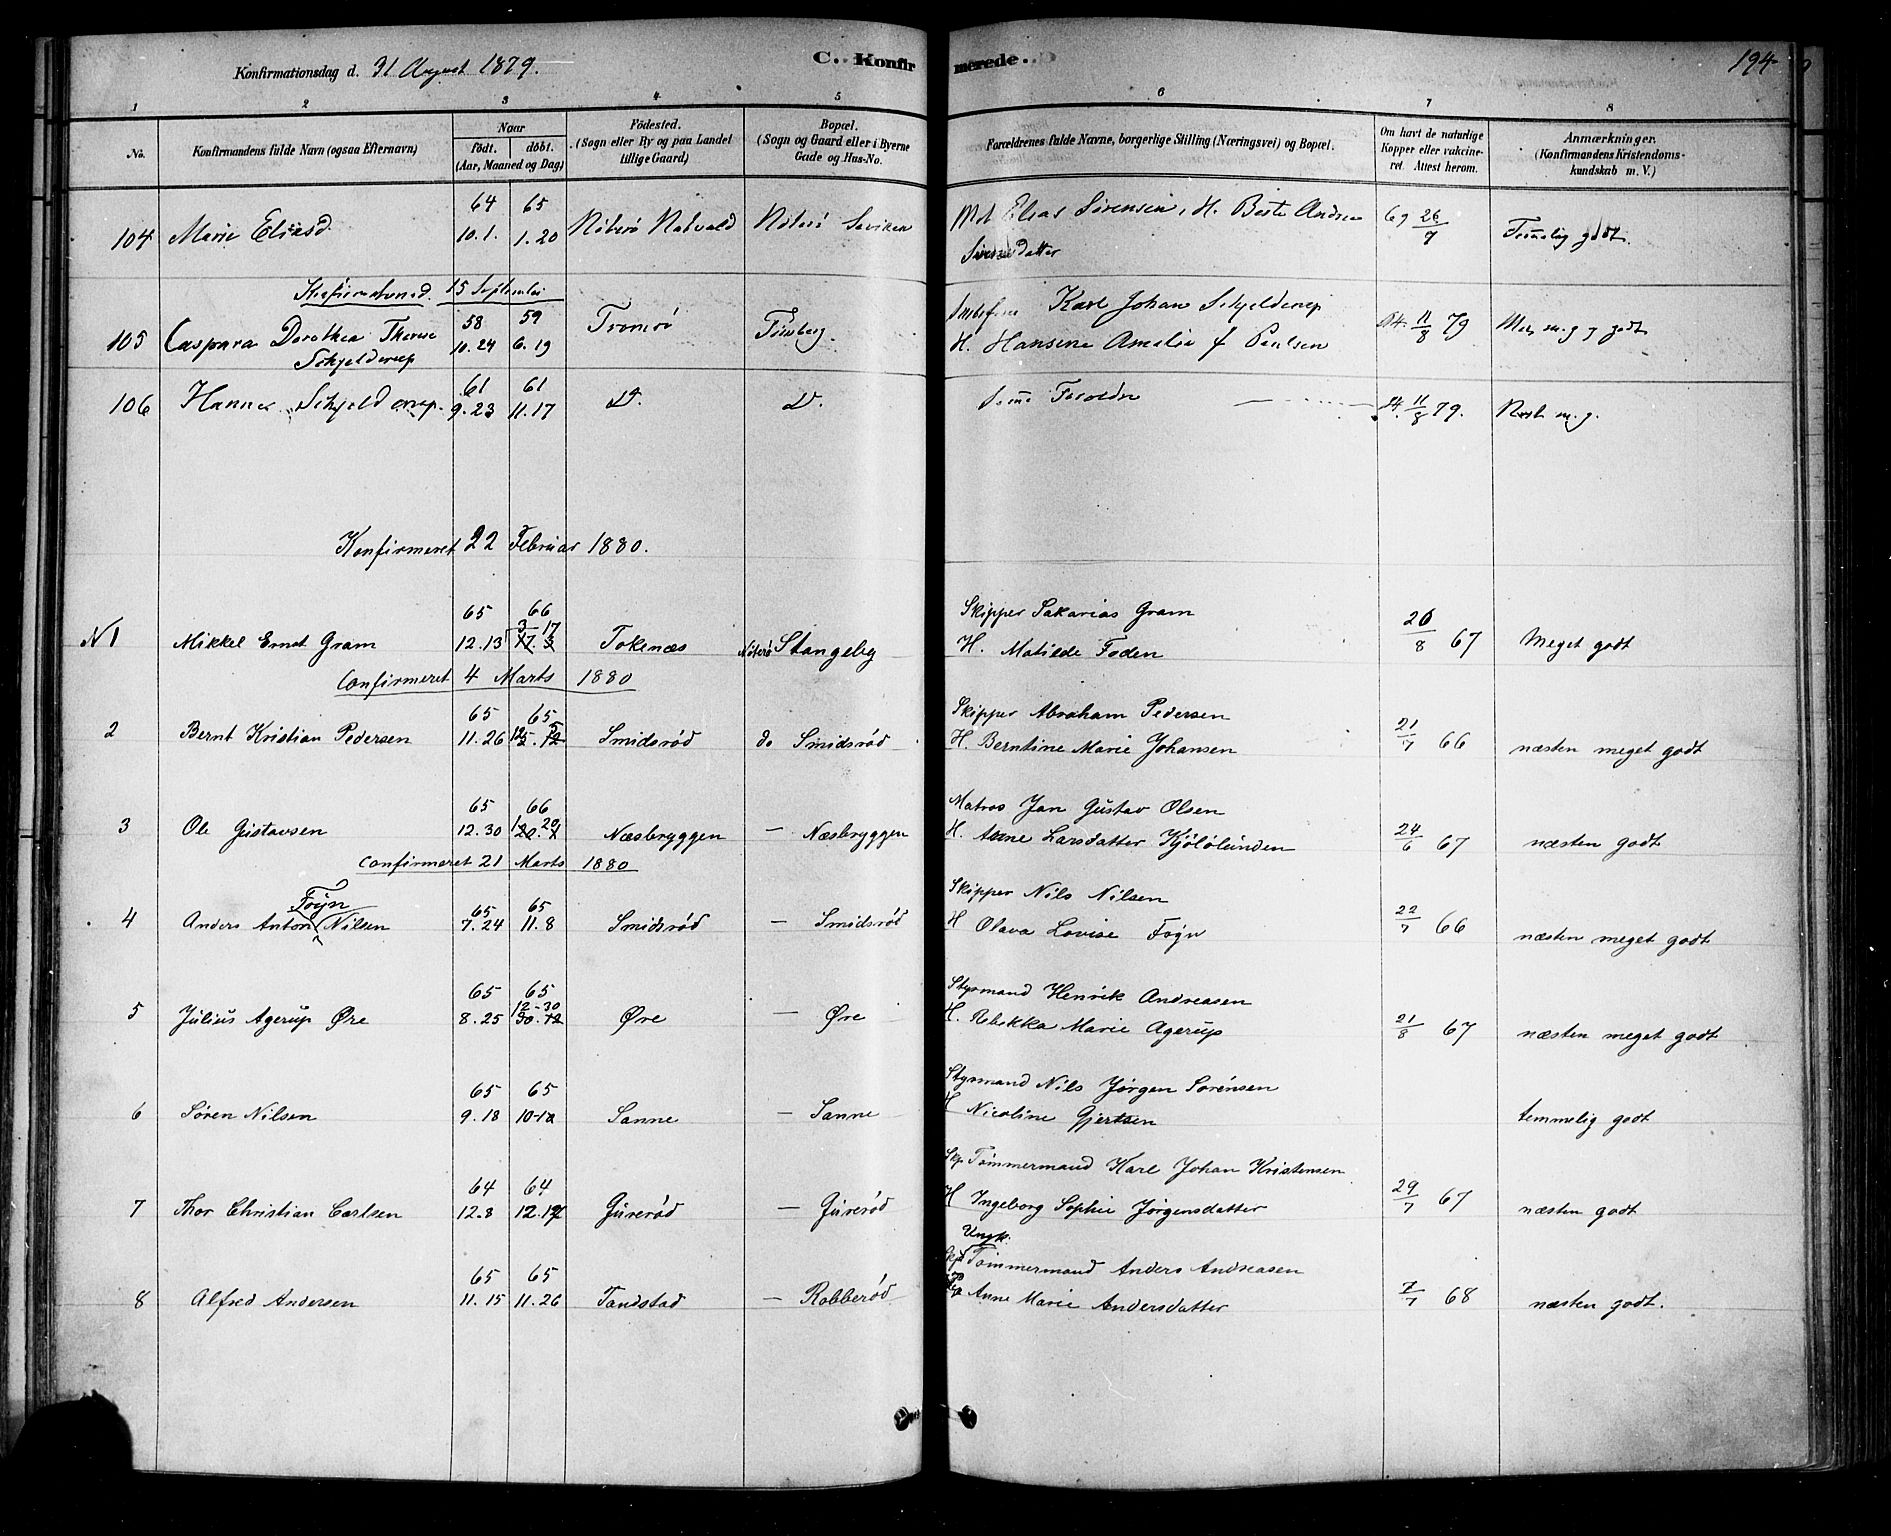 Konfirmationsdag d. 31 August 1879.
C. Konfirmerede.
194
1 2 3 4 5 6 7 8
No.
Konfirmandens fulde Navn (ogsaa Efternavn)
Naar
født. døbt.
(Aar, Maaned og Dag)
Fødested.
(Sogn eller By og paa Landet
tillige Gaard)
Bopæl.
(Sogn og Gaard eller i Byerne
Gade og Hus-No.
Forældrenes fulde Navne, borgerlige Stilling (Næringsvei) og Bopæl.
Om havt de naturlige
Kopper eller vakcine-
ret. Attest herom.
Anmærkninger.
(Konfirmandens Kristendoms-
kundskab m. V.)
64 65
104 Marie Eliasd. 10.1. 1.20 Nøterø Elias Sørensen, H. Andrea 69 26/7 godt.
datter
15 September
58 59 Karl Johan Schjelderup
105 Caspara Dorothea Therese 10.24 6.19 Tromsø Tønsberg. H. Hansine Amalie f Paulsen 11/8 79
Schjelderup
61 61
106 Hanna Schjelderup. 9.23 11.17 D. D. 11/8 79. m.g.
Konfirmeret 22 Februar 1880.
65 66 Skipper Sakarias Gram
N 1 Mikkel Ernst Gram 12.13 3 17 17. 3 Tokenæs Nøterø Stangeby H. Matilde Foden 26/8 67 Meget godt
Confirmeret 4 Marts 1880
65 65 Skipper Abraham Pedersen
2 Bernt Kristian Pedersen 11.26 Smidsrød do Smidsrød H. Berntine Marie Johansen 21/7 66 næsten meget godt
65 66 Matros Jan Gustav Olsen
3 Ole Gustavsen 12.30 Næsbryggen — Næsbryggen H. Anne Larsdatter Kjølølunden 24/6 67 næsten godt
Confirmeret 21 Marts 1880
Føyn
65 65 Skipper Nils Nilsen
4 Anders Anton Nilsen 7.24 11.8 Smidsrød — Smidsrød H Olava Lovise Føyn 22/7 66 næsten meget godt
65 65 Styrmand Henrik Andreasen
12-30
5 Julius Agerup Øre 8.25 30.12 Øre — Øre H. Rebekka Marie Agerup 21/8 67 næsten meget godt
65 65 Styrmand Nils Jørgen Sørensen
6 Søren Nilsen 9.18 Sanne — Sanne H Nicoline Gjertsen temmelig godt
64 64 Skp Tømmermand Karl Johan Kristensen
7 Thor Christian Carlsen 12.8 Gurerød — Gurerød H Ingeborg Sophie Jørgensdatter 29/7 67 næsten godt
Ungk.
65 65 Skp Tømmermand Anders Andreasen
8 Alfred Andersen 11.15 11.26 Tandstad — Robberød Anne Marie Andersdatter 7/7 68 næsten godt.